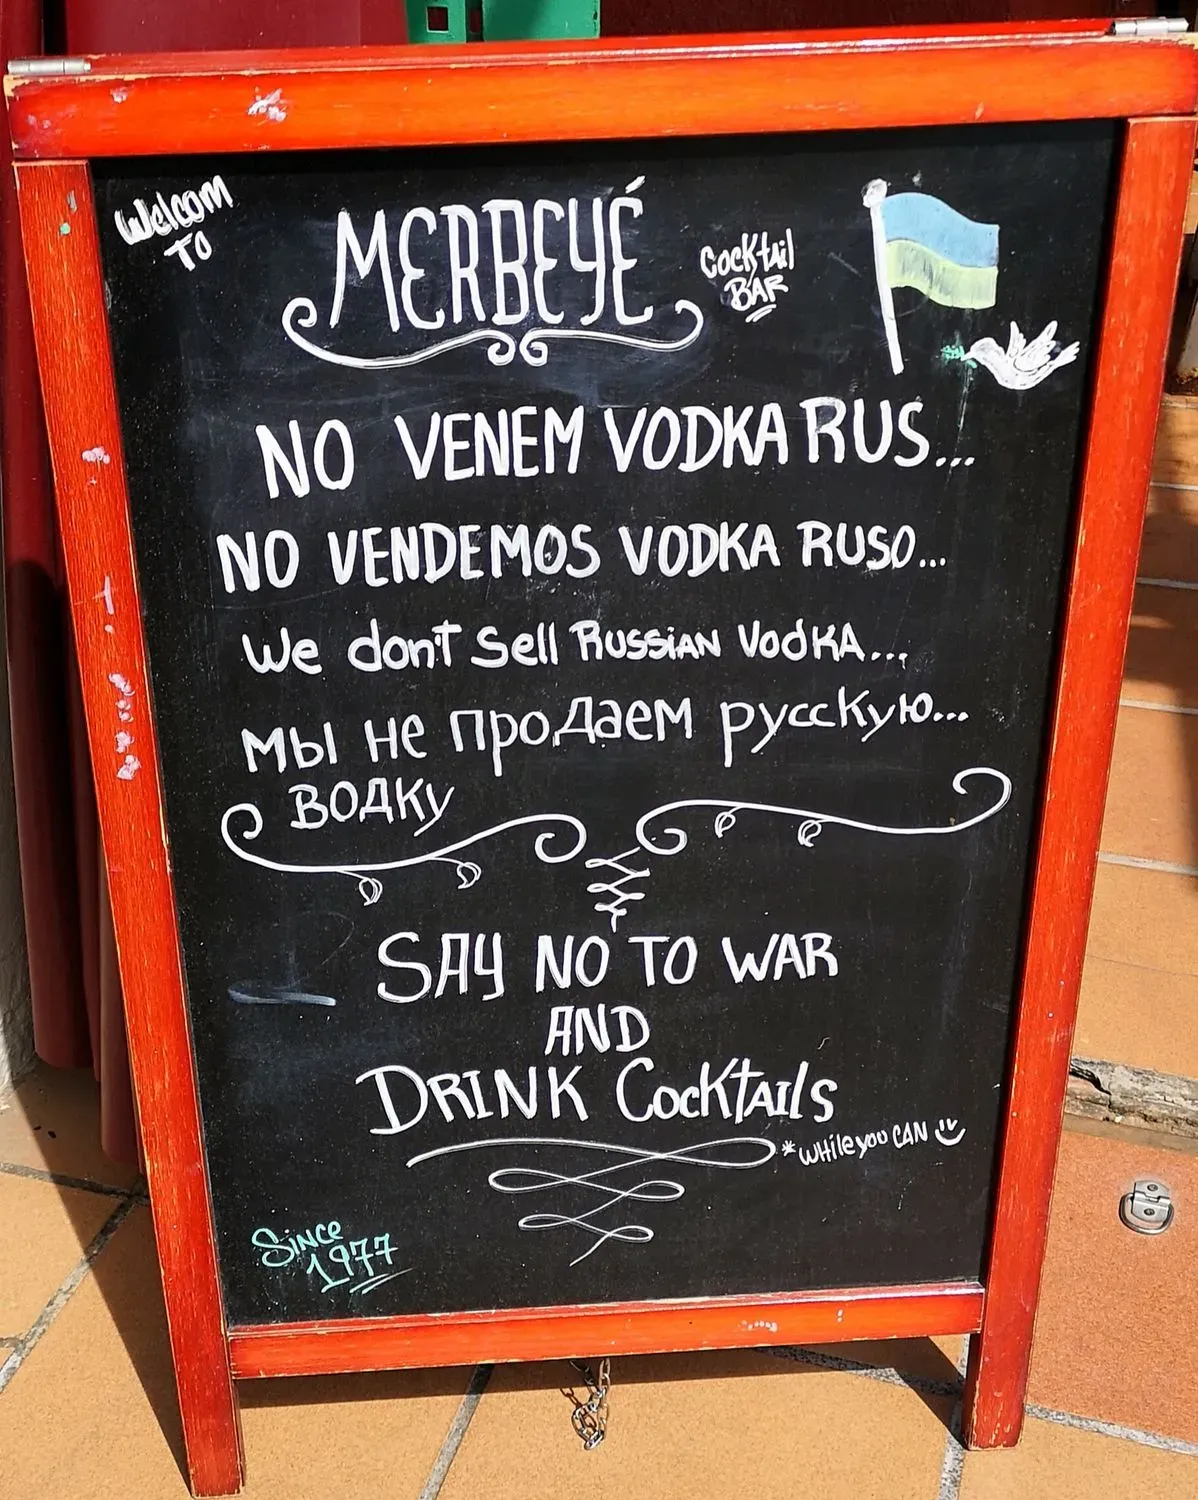 Welcom
TO
MERBEYÉ
Cocktail
BAR
NO VENEM VODKA RUS...
NO VENDEMOS VODKA RUSO...
We don't Sell RUSSiAN VodKA...
мы не продаем русскую...
водку
SAY NO TO WAR
AND
DRINK CocKtAils
*WHile you CAN
Since
1977